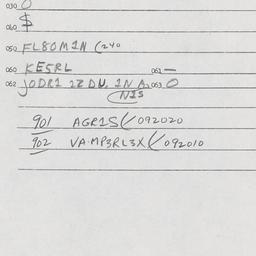 030 O
060 $
050 FL80M1N (240
060 KE5RL 061 —
062 JODR1 1ZDU. 1N A. 063 O
(N15
901 AGR1S (/092020
902 VA.MP3RL3X (/092010